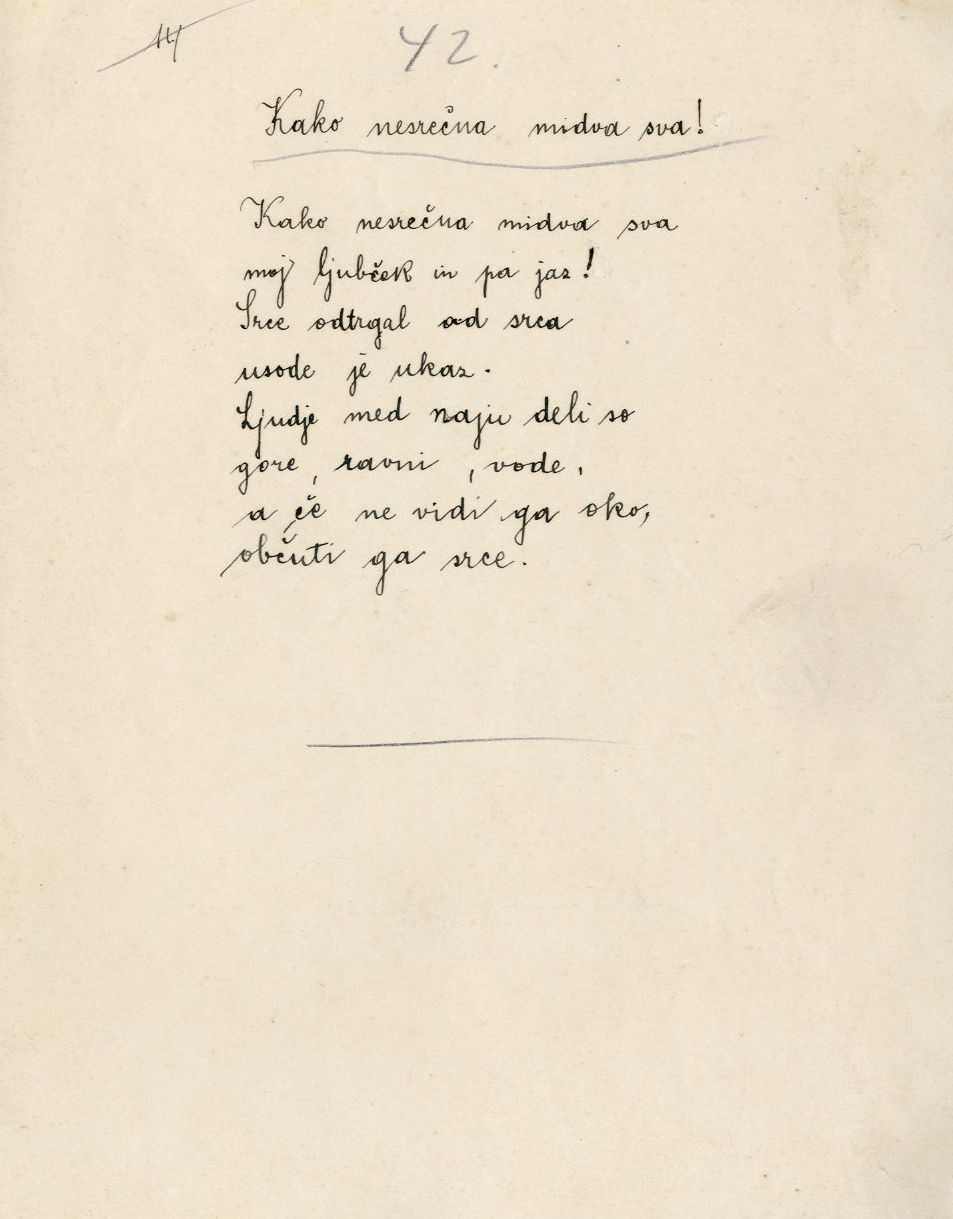 42.
Kako nesrečna midva sva!
Kako nesrečna midva sva
moj ljubček in pa jaz!
Srce odtrgal od srca
usode je ukaz.
Ljudje med naju deli so
gore, ravni, vode,
a če ne vidi ga oko,
občuti ga srce.